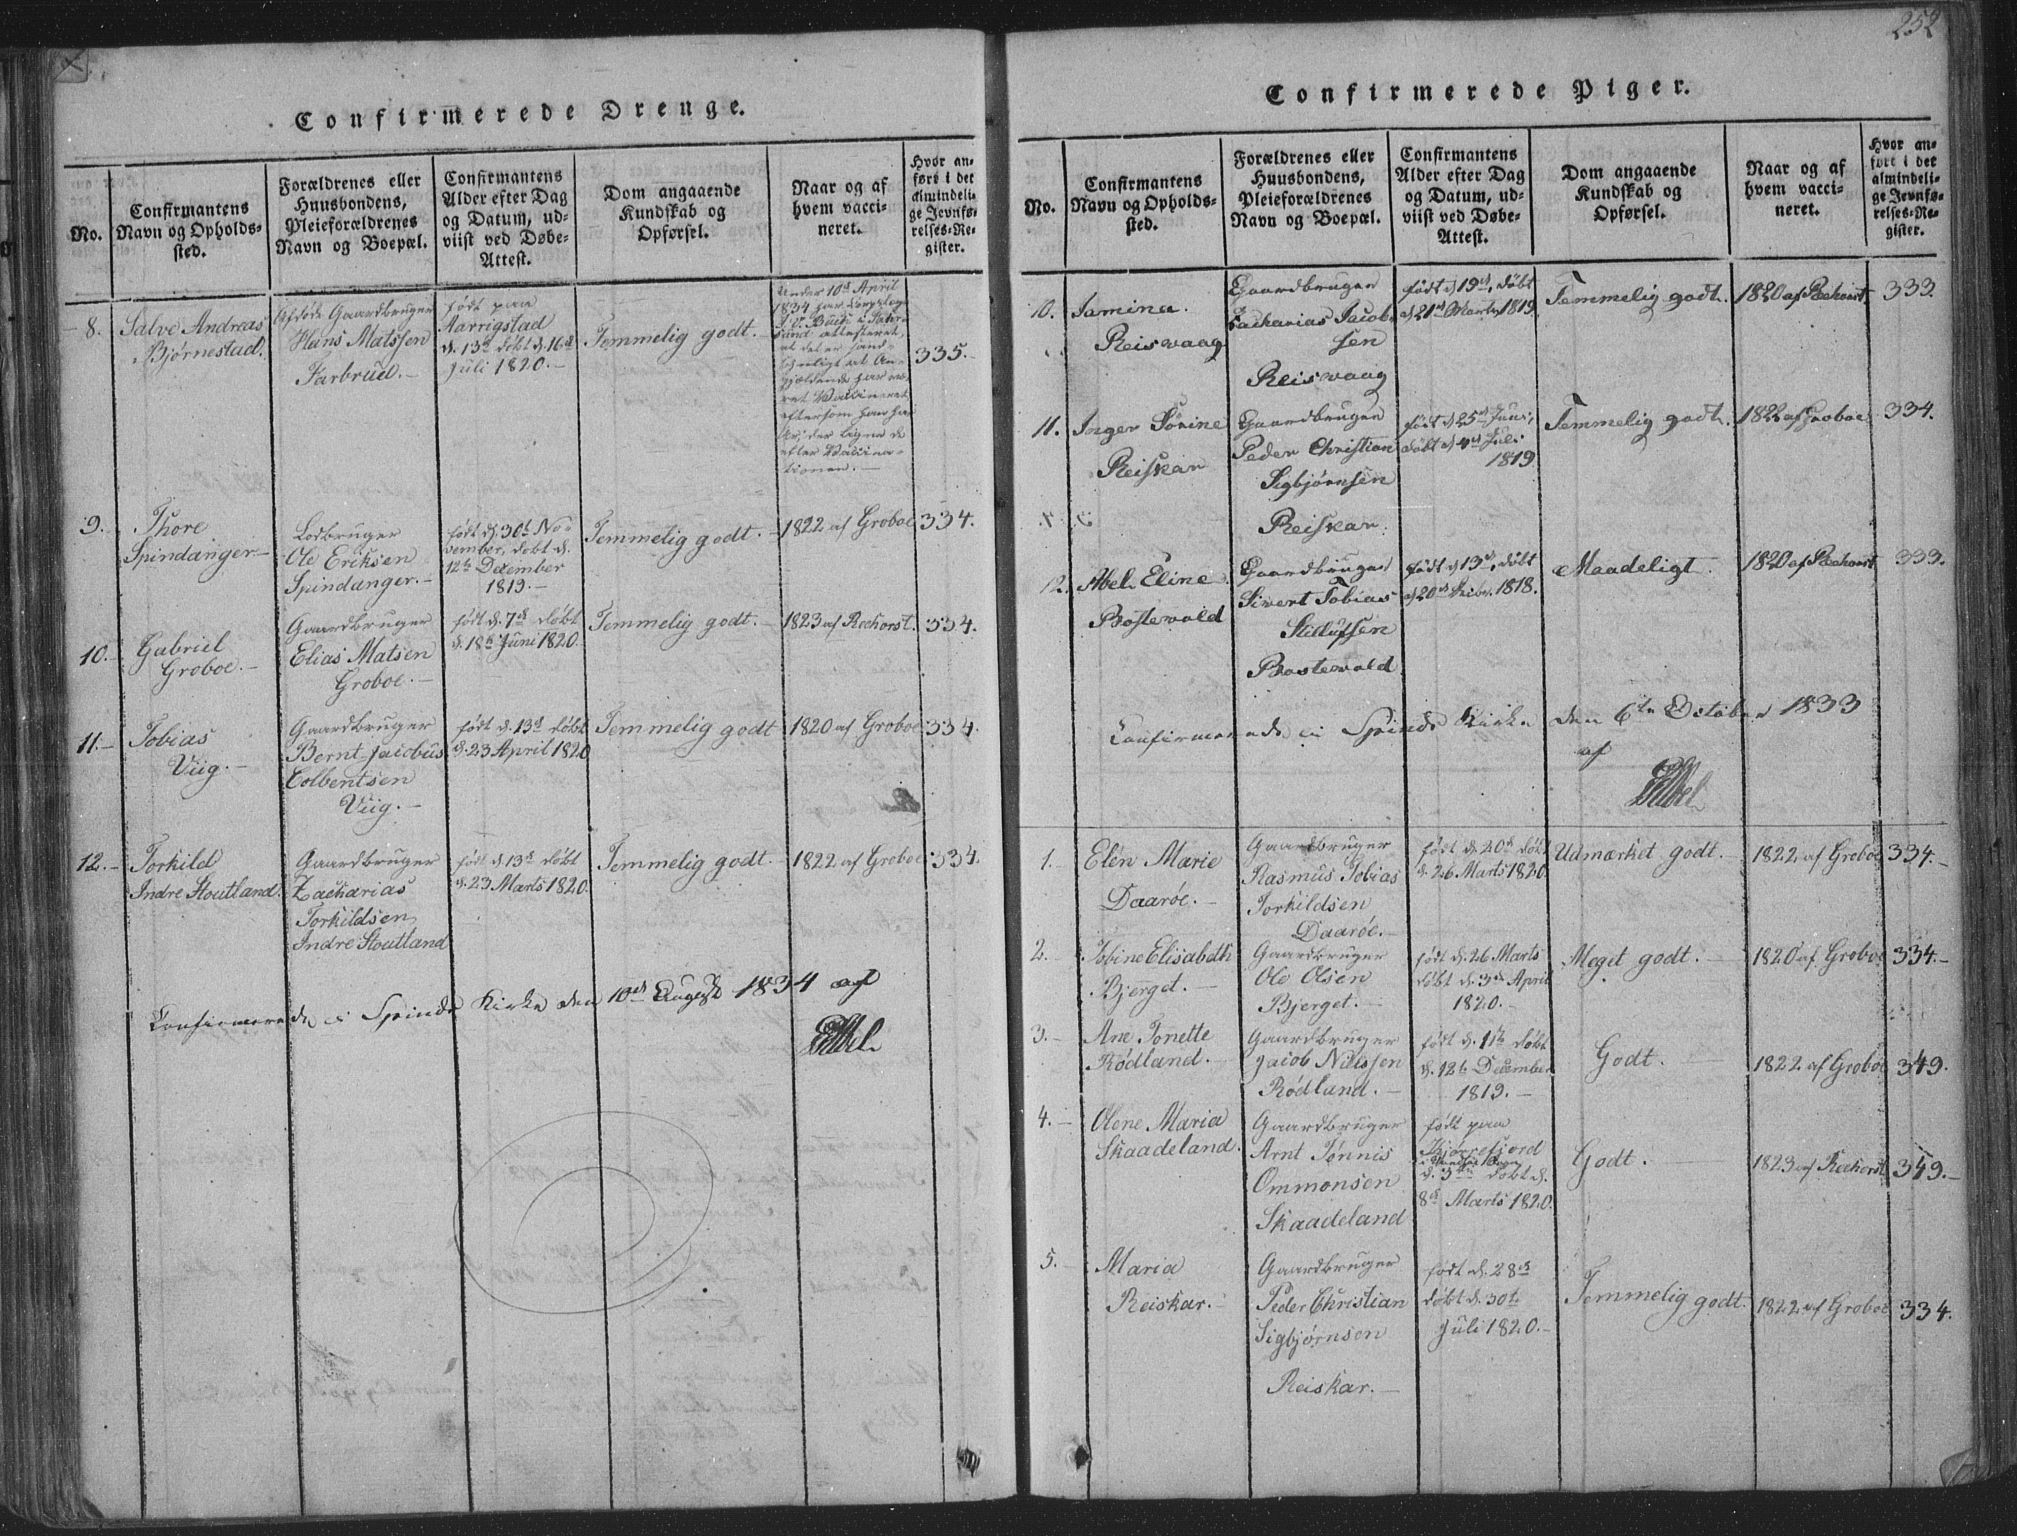 252
Confirmerede Drenge.
No.
Confirmantens
Navn og Opholds-
sted.
Forældrenes eller
Huusbondens,
Pleieforældrenes
Navn og Boepæl.
Confirmantens
Alder efter Dag
og Datum, ud-
viist ved Døbe-
Attest.
Dom angaaende
Kundskab og
Opførsel.
Naar og af
hvem vacci-
neret.
Hvor an-
ført i det
almindeli-
ge Jevnfø-
relses-Re-
gister.
8.
Salve Andreas
Bjørnestad.
Afdøde Gaardbruger
Hans Matssen
Farbrud.
født paa
Aarrigstad
d. 13d døbt d. 16d
Juli 1820.
Temmelig godt.
Under 10d April
1834 har
attesteret,
at det er sand-
synligt at An-
gjældende har væ-
ret Vaccineret
eftersom han har
Ar, der ligne de
efter Vaccina-
tionen.
335.
9.
Thore
Spindanger.
Lodbruger
Ole Eriksen
Spindanger.
født d. 30t No-
vember, døbt d.
12te December
1819.
Temmelig godt.
1822 af Groboe
334.
10.
Gabriel
Groboe.
Gaardbruger
Elias Matsen
Groboe.
født d. 7d døbt
d. 18d Juni 1820.
Temmelig godt.
1823 af Reehorst.
334.
11.
Tobias
Viig.
Gaardbruger
Bernt Jacobus
Colbentsen
Viig.
født d. 13d døbt
d. 23 April 1820
Temmelig godt
1820 af Groboe
334.
12.
Torkild
Indre Stoutland.
Gaardbruger
Zacharias
Torkildsen
Indre Stoutland
født d. 13d døbt
d. 23 Marts 1820.
Temmelig godt.
1822 af Groboe
334.
Confirmerede i Spinds Kirke den 10de August 1834 af
Confirmerede Piger.
No.
Confirmantens
Navn og Opholds-
sted.
Forældrenes eller
Huusbondens,
Pleieforældrenes
Navn og Boepæl.
Confirmantens
Alder efter Dag
og Datum, ud-
viist ved Døbe-
Attest.
Dom angaaende
Kundskab og
Opførsel.
Naar og af
hvem vacci-
neret.
Hvor an-
ført i det
almindeli-
ge Jevnfø-
relses-Re-
gister.
10.
Samina.
Reisvaag
Gaardbruger
Zacharias Jacob-
sen
Reisvaag
født d 19d, døbt
d 21d Marts 1819
Temmelig godt.
1820 af Reehorst
333.
11.
Inger Sørine
Reiskar
Gaardbruger
Peder Christian
Sigbjørnsen
Reiskar.
født d 25d Juni,
døbt d 4d Juli
1819
Temmelig godt.
1822 af Groboe
334.
12.
Abel Eline
Bostevold
Gaardbruger
Sivert Tobias
Bostevold
født d 13d, døbt
1818.
Maadeligt.
1820 af Reehorst
333.
Confirmerede i Spinds Kirke den 6te October 1833
af
1.
Elen Marie
Daarøe.
Gaardbruger
Rasmus Tobias
Torkildsen
Daarøe.
født d. 20d døbt
d. 26 Marts 1820.
Udmærket godt.
1822 af Groboe
334.
2.
Tobine Elisabeth
Bjerget.
Gaardbruger
Ole Olsen
Bjerget.
født d. 26 Marts
døbt d. 3d April
1820.
Meget godt.
1820 af Groboe
334.
3.
Ane Tonette
Rødland.
Gaardbruger
Jacob Nilssen
Rødland.
født d. 1te døbt
d. 12te December
1819.
Godt.
1822 af Groboe
349.
4.
Olene Maria
Skaadeland.
Gaardbruger
Arnt Tønnis
Ommonsen
Skaadeland
født paa
d. 3die døbt d.
8d Marts 1820.
Godt.
1823 af Reehorst
349.
5.
Maria
Reiskar.
Gaardbruger
Peder Christian
Sigbjørnson
Reiskar.
født d. 28d
døbt d. 30t
Juli 1820.
Temmelig godt.
1822 af Groboe
334.